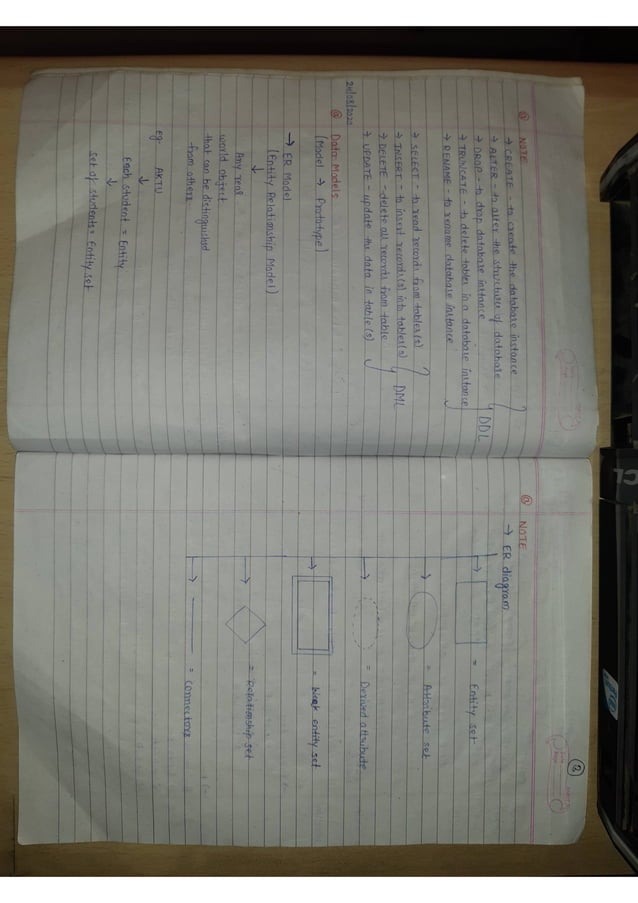 @ NOTE
→ CREATE - to create the database instance
→ ALTER - to alter the structure of database
→ DROP - to drop database instance
→ TRUNCATE - to delete tables in a database instance
→ RENAME - to rename database instance
DDL
→ SELECT - to read records from table(s)
→ INSERT - to insert record(s) into table(s)
→ DELETE - delete all records from table
→ UPDATE - update the data in table(s)
DML
@ Data Models
[Model → Prototype]
→ ER Model
[Entity Relationship Model]
↓
Any real
world object
that can be distinguished
from others
eg. AKTU
↓
Each student = Entity
↓
Set of students = Entity set
@ NOTE
→ ER diagram
= Entity set
= Attribute set
= Derived attribute
= entity set
= Relationship set
= Connectors
2
CL